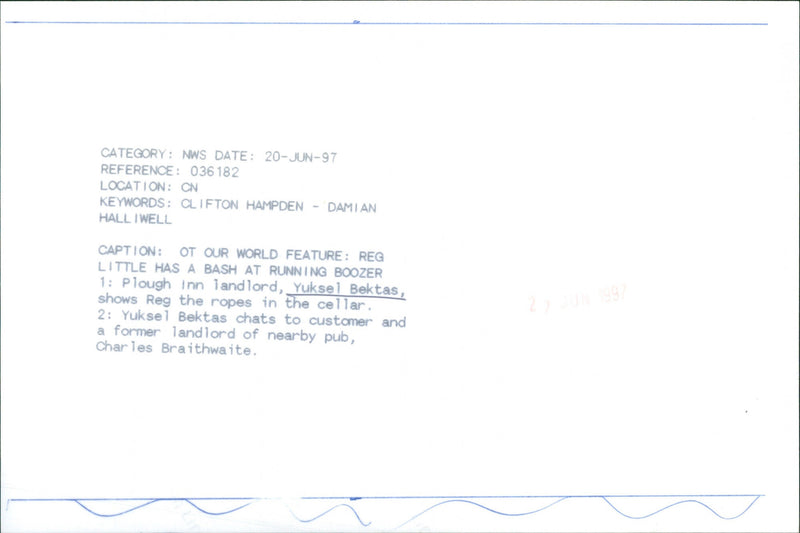 CATEGORY: NWS DATE: 20-JUN-97
REFERENCE: 036182
LOCATION: CN
KEYWORDS: CLIFTON HAMPDEN - DAMIAN
HALLIWELL
CAPTION: OT OUR WORLD FEATURE: REG
LITTLE HAS A BASH AT RUNNING BOOZER
1: Plough Inn landlord, Yuksel Bektas,
shows Reg the ropes in the cellar.
2: Yuksel Bektas chats to customer and
a former landlord of nearby pub,
Charles Braithwaite.
JUN 1997